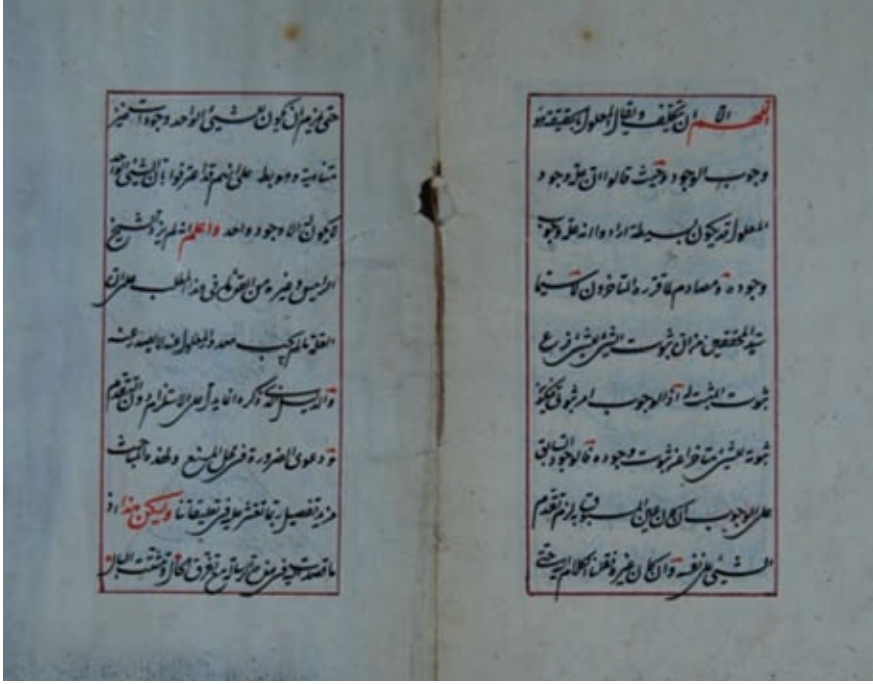 اللهم الا ان يتكلف ويقال المعلول بالحقيقة هو
وجوب الوجود وحيث قالوا ان علة وجود
المعلول قد يكون بسيطة ارادوا انه علة وجوب
وجوده ومصادم لما قرره المتاخرون لا سيما
سيد المحققين من ان ثبوت الشئ للشئ فرع
ثبوت المثبت له اذ الوجوب امر ثبوتى
ثبوته للشئ متاخرا عن ثبوت وجوده فالوجود السابق
على الوجوب ان كان عين المسبوق يلزم تقدم
الشئ على نفسه وان كان غيره نقلنا الكلام اليه حتى
حتى يلزم ان يكون للشئ الواحد وجودات غير
متناهية وهو بط على انهم قد اعترفوا بان الشئ الواحد
لا يكون له الا وجود واحد واعلم انه لم يزد الشيخ
الرئيس وغيره من القوم فى هذا المطلب على ان
العلة ما لم يجب صدور المعلول عنه لا يصدر عنه
والدليل الذى ذكره انما يدل على الاستلزام دون التقدم
ودعوى الضرورة فى محل المنع ولهذه المباحث
مزيد تفصيل ربما تعثر عليه فى تعليقاتنا وليكن هذا اخر
ما قصدت فى هذه الرسالة مع تفرق الحال وتشتت البال